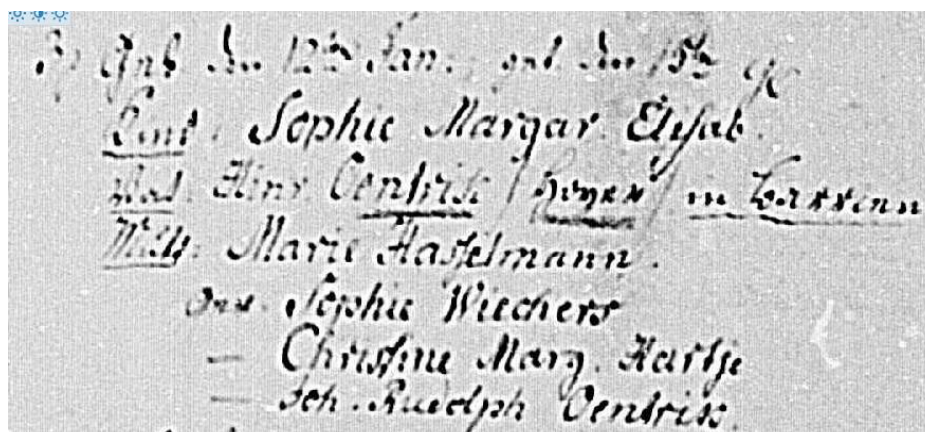 3, Geb. den 12ten Jan., get. den 15ten
Kind. Sophie Margar. Elisab.
Vat. Hinr Oentrix / Hoyer / in Barrien
Mutt. Marie Hasselmann.
Sophie Wiechers
— Christine Marg. Hartje
— Joh. Rudolph Oentrix.